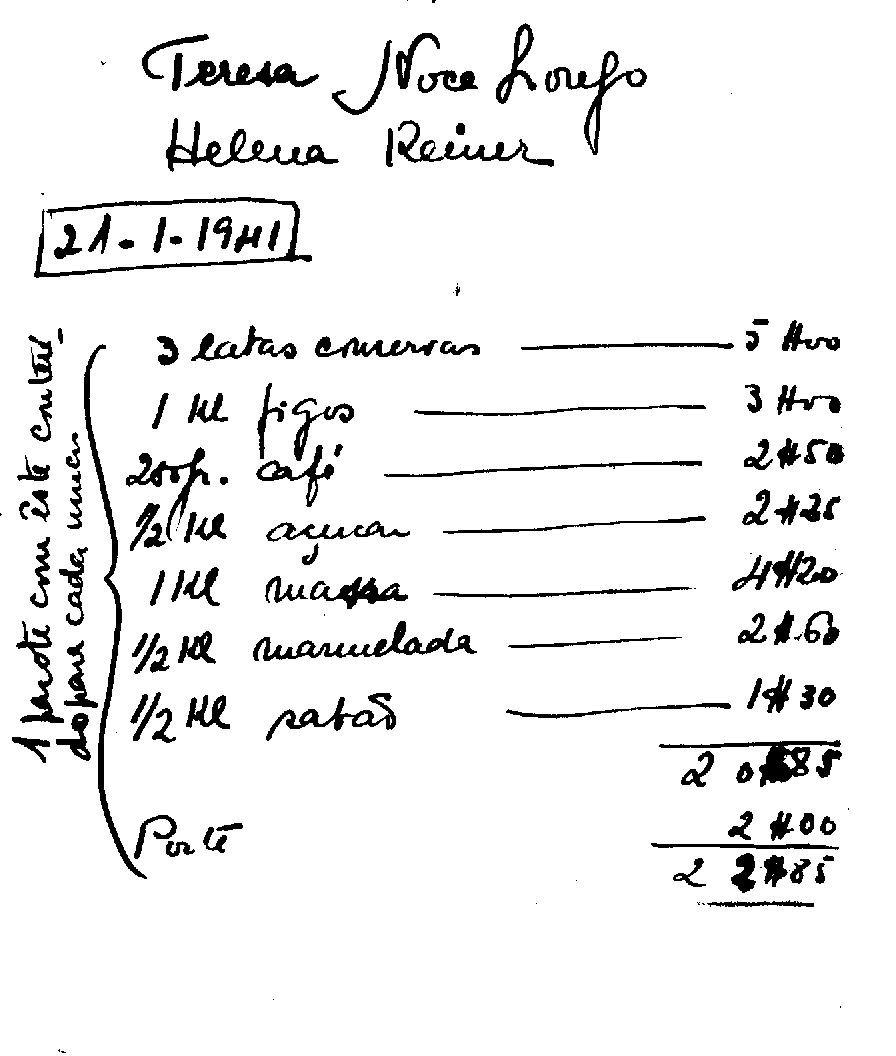 Teresa Noce Longo
Helena Reiner
21-1-1941
1 pacote com êste conteú-
do para cada uma
3 latas conservas — 5$00
1 Kl figos — 3$00
200 gr. café — 2$50
1/2 Kl açucar — 2$25
1 Kl massa — 4$20
1/2 Kl marmelada — 2$60
1/2 Kl sabão — 1$30
20$85
Porte 2$00
22$85